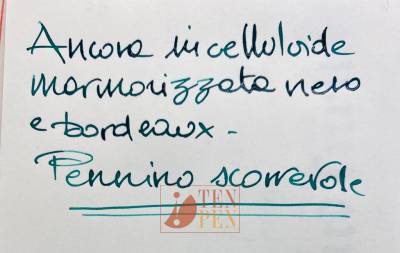 Ancora in celluloide
marmorizzata nero
e bordeaux -
Pennino scorrevole
TEN
PEN